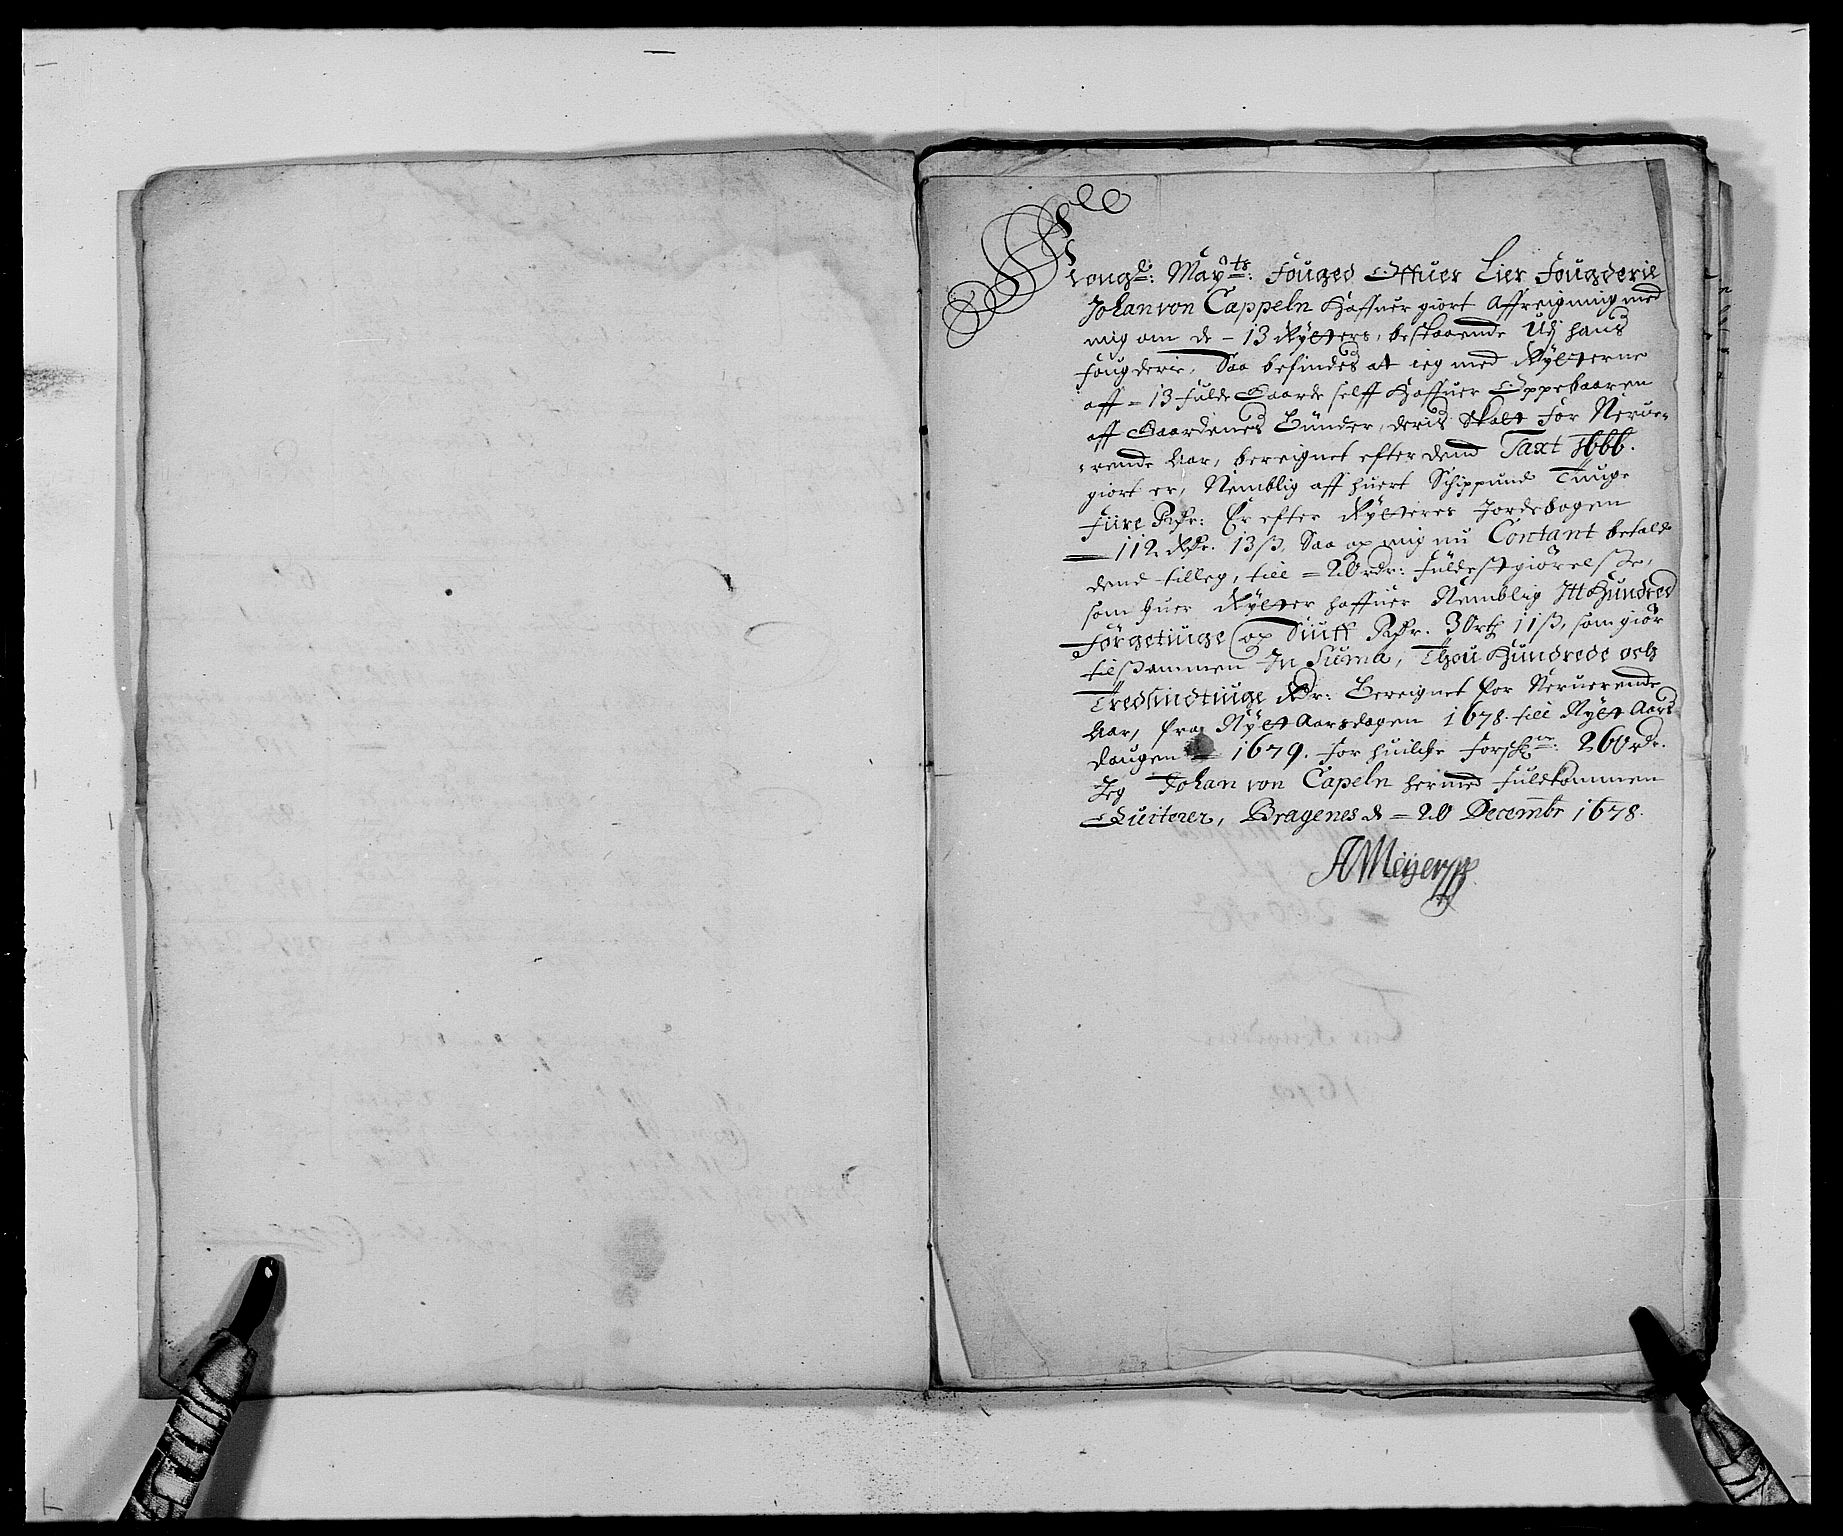 Kongl: Mayts: Fouged Offuer Lier Fougderie
Johan von Cappeln Haffuer giort Affreigning med
mig om de = 13 Rytters, bestaaende Udj hans
fougderie, Saa befindes at ieg med Rytterne
aff = 13 fulde Gaarde selff Haffuer Oppebaaren
aff Gaardenes Bönder, deris Skatt for Nerue-
-rende Aar, bereignet efter dend Taxt 1666.
giort er, Nemblig aff huert Schippund Tiuge
fiire Rdr: Er efter Rytteres Jordebogen
= 112 Rdr. 13 ß, Saa og mig nu Contant betalt
dend tilleg, till = 20 rdr: fuldestgiörelsse,
som huer Rytter haffuer Nemblig Itt Hundred
förgetiuge og Siuff Rdr. 3 Ort 11 ß, som giör
tilsammen In Suma, Thou Hundrede och
Tredsindtiuge Rdr: Bereignet for Neruerende
Aar, fra Nytt Aarsdagen 1678. till Nytt Aars
daugen 1679. for huilche forskne: 260 rdr.
Jeg Johan von Capeln hermed fuldkommen
Quiterer, Bragenes d = 20 Decembr 1678.
AMeÿer